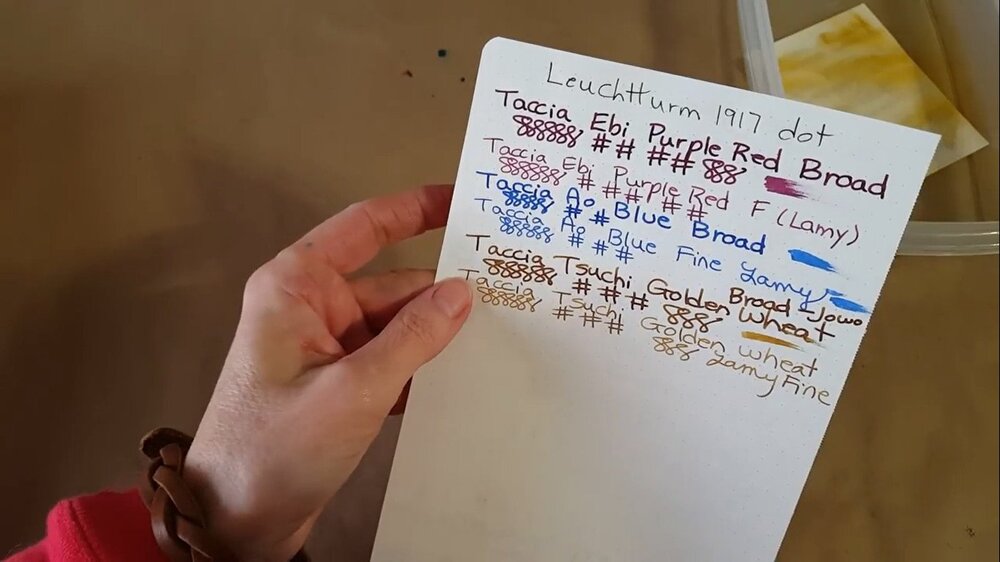 Leuchtturm 1917 dot
Taccia Ebi Purple Red Broad
## ##
Taccia Ebi Purple Red F (Lamy)
# # # # #
Taccia Ao Blue Broad
# #
Taccia Ao Blue Fine Lamy
# # #
Taccia Tsuchi Golden Wheat Broad - Jowo
# # #
Taccia Tsuchi Golden wheat
# # # Lamy Fine